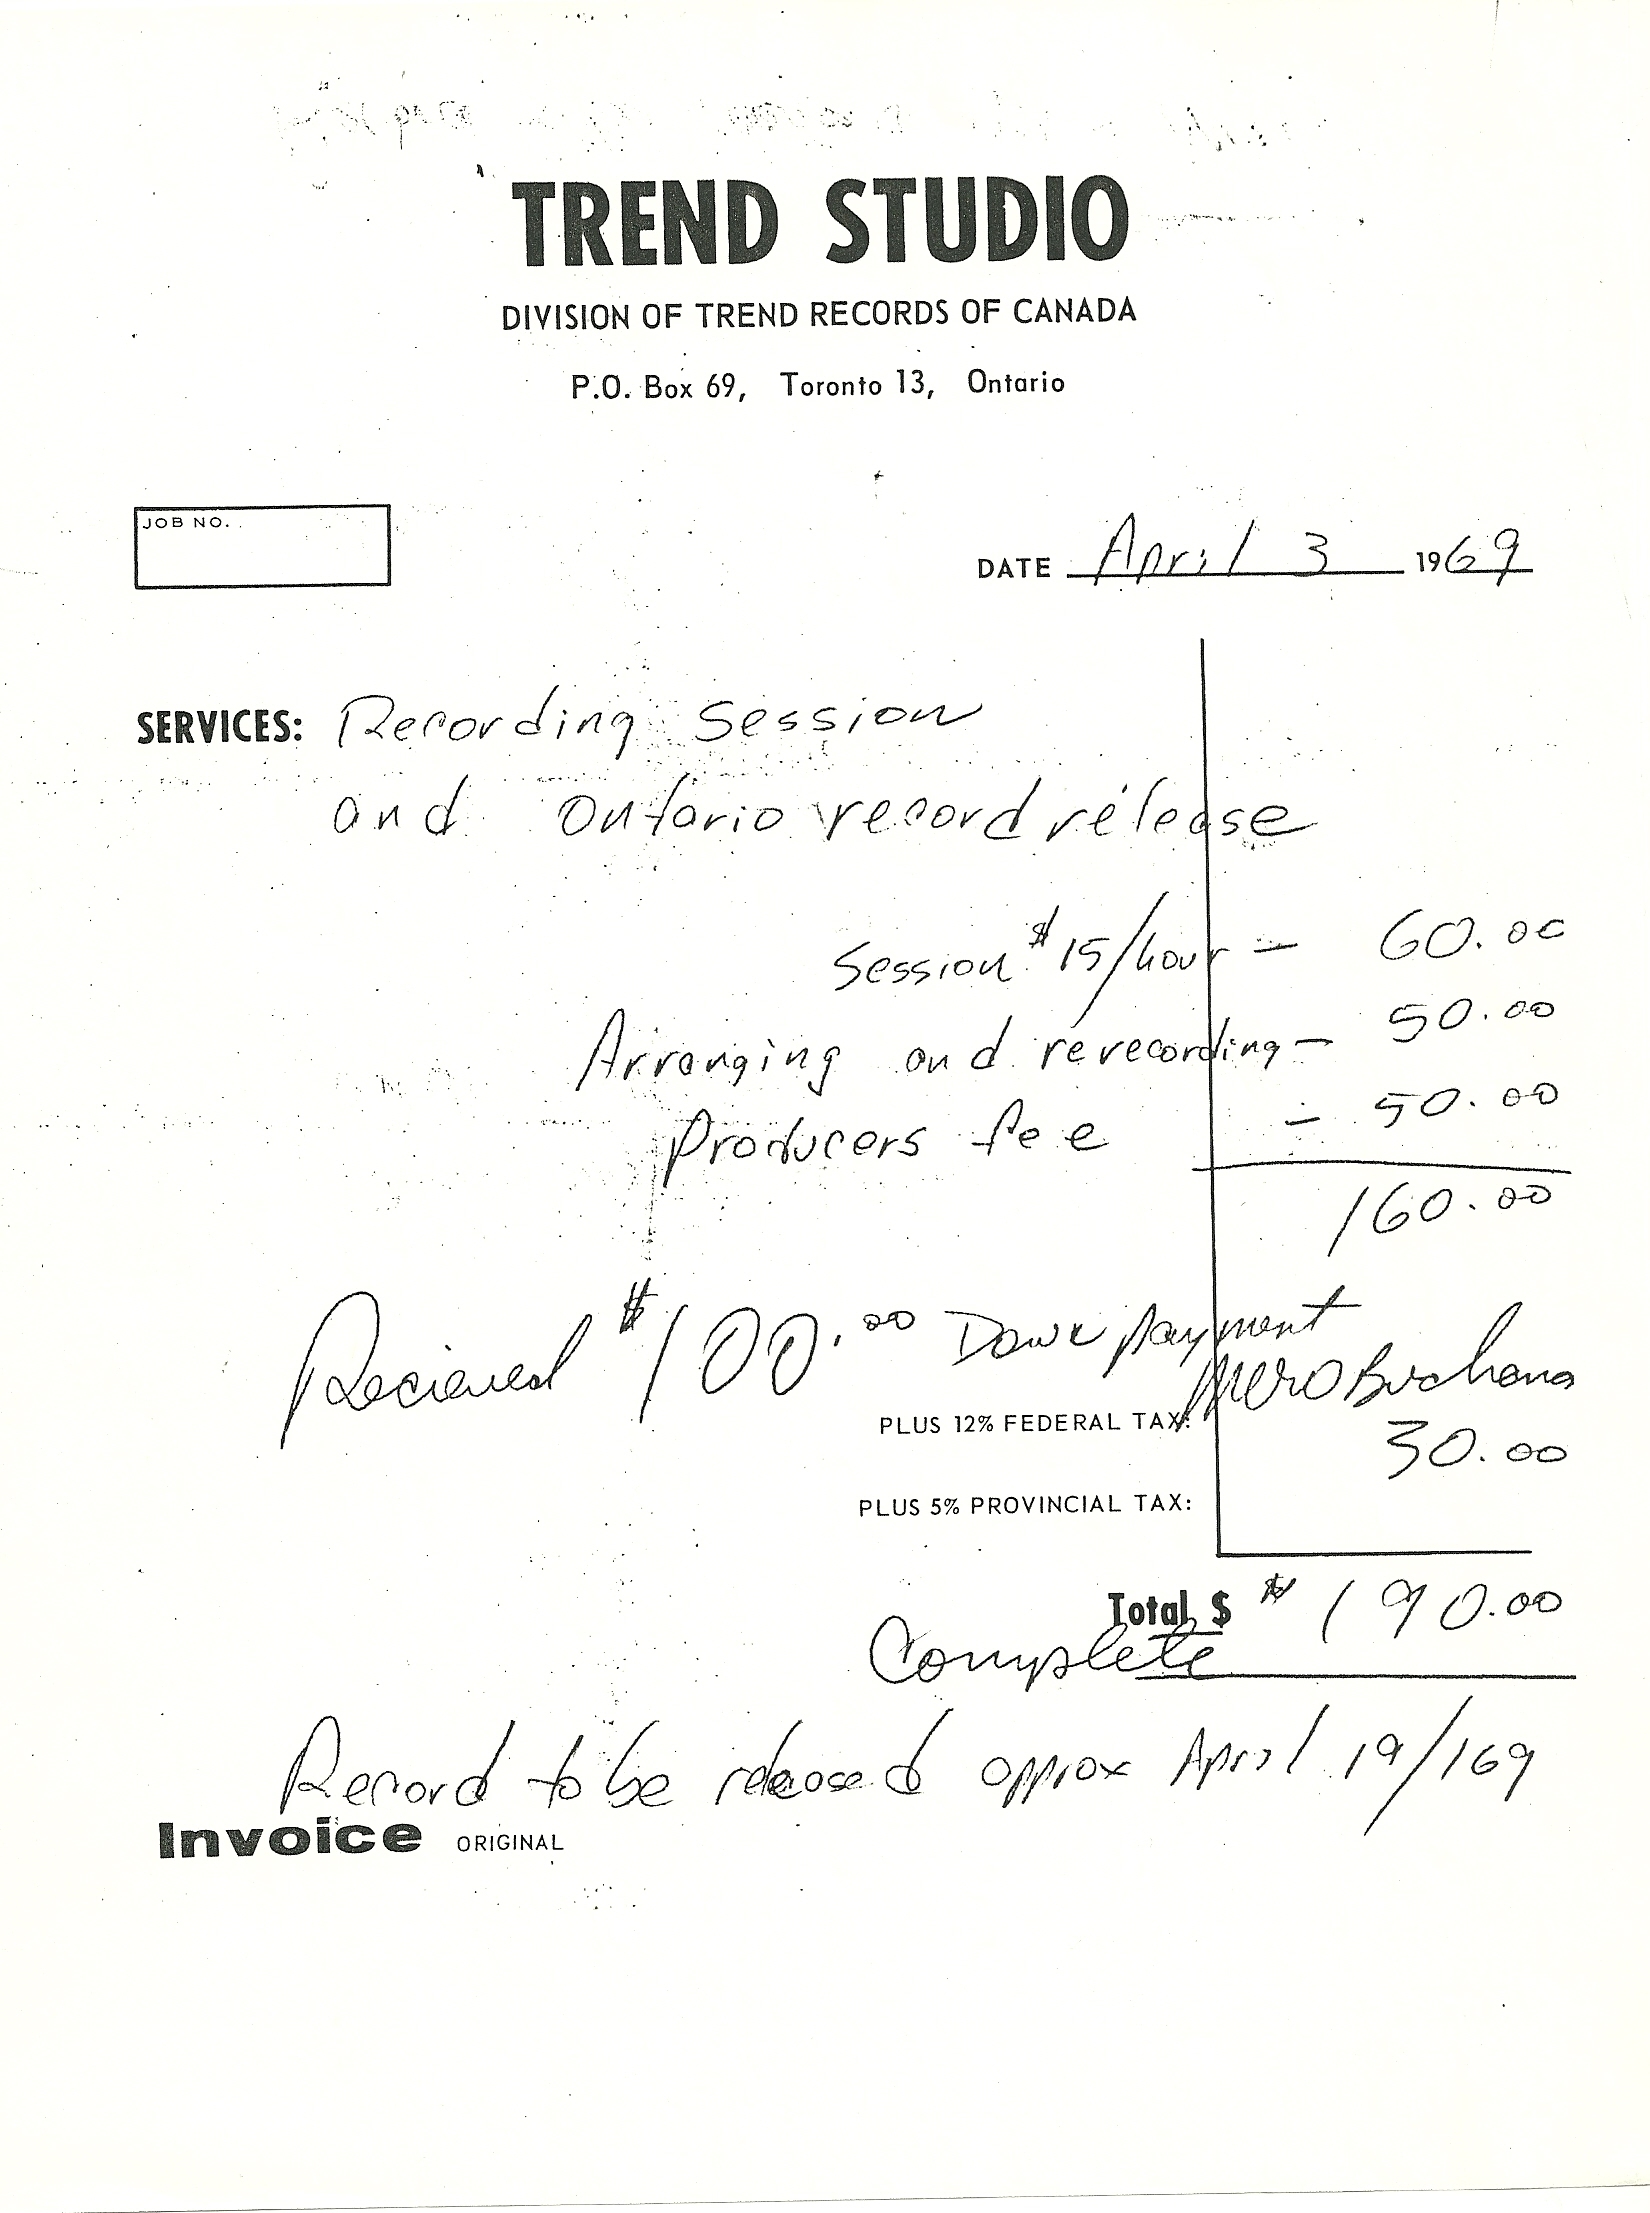 TREND STUDIO
DIVISION OF TREND RECORDS OF CANADA
P.O. Box 69, Toronto 13, Ontario
JOB NO.
DATE April 3 1969
SERVICES: Recording Session
and Ontario record release
Session $15/hour — 60.00
Arranging and rerecording — 50.00
Producers fee — 50.00
160.00
Recieved $100.00 Down payment
Mero Buchana
PLUS 12% FEDERAL TAX:
30.00
PLUS 5% PROVINCIAL TAX:
Total $ $ 190.00
Complete
Record to be released approx April 19/169
Invoice ORIGINAL